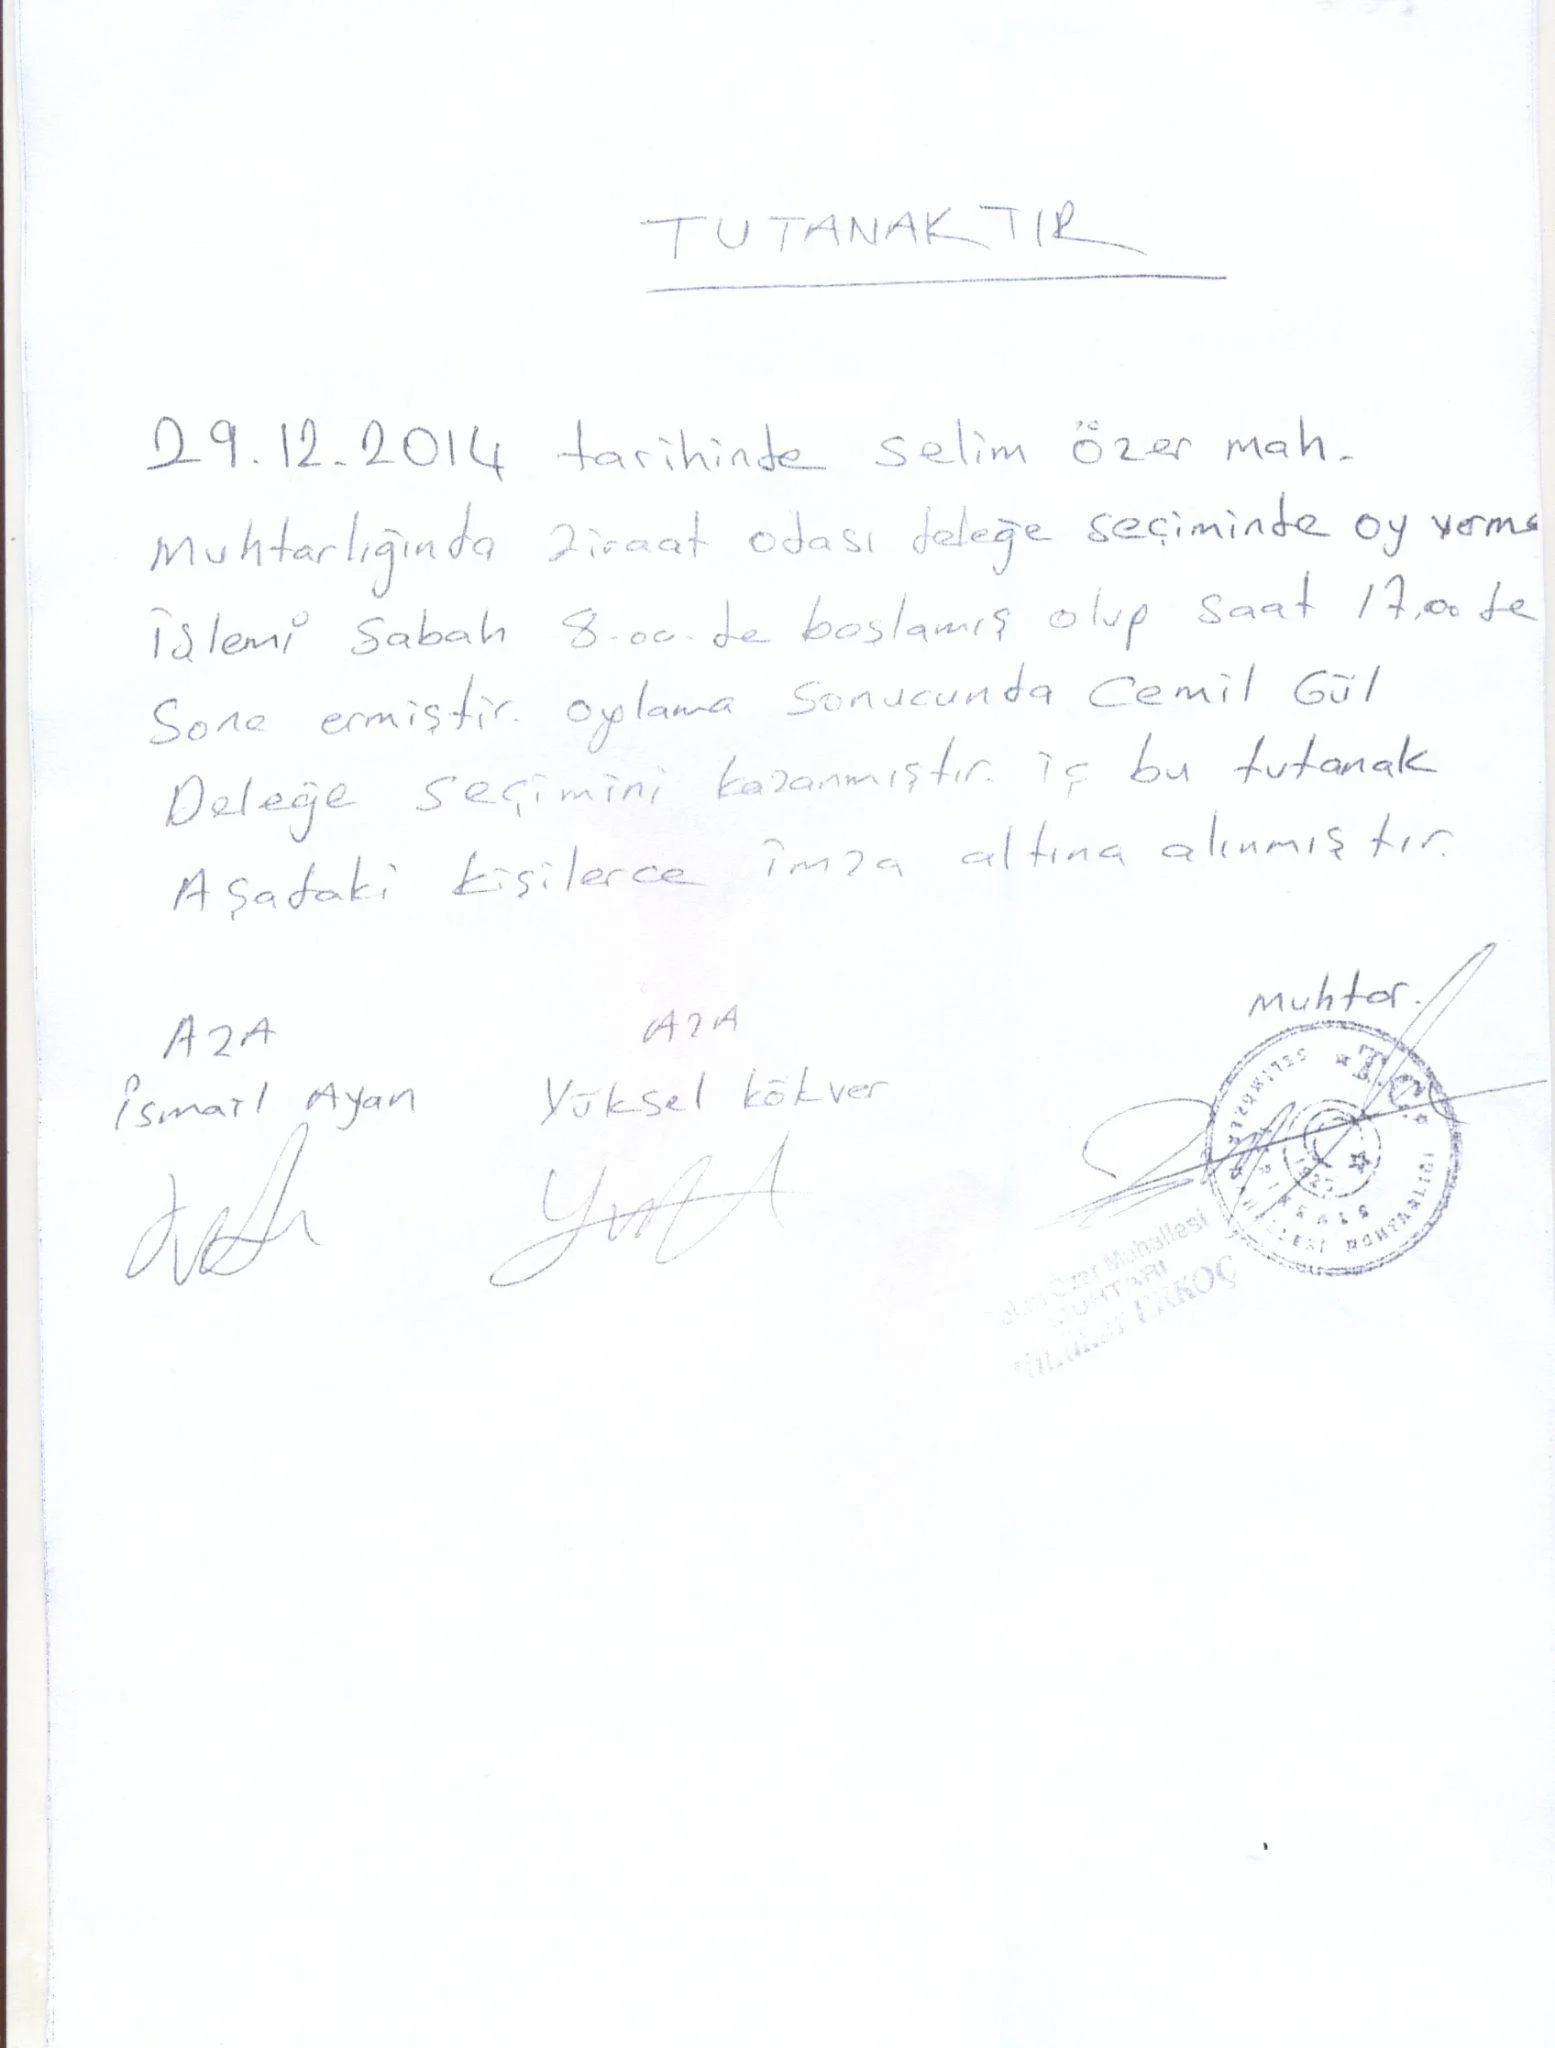 TUTANAKTIR
29.12.2014 tarihinde selim özer mah.
Muhtarlığında ziraat odası deleğe seçiminde oy verme
İşlemi sabah 8.00.de başlamış olup saat 17.00 de
Sona ermiştir. oylama sonucunda Cemil Gül
Deleğe seçimini kazanmıştır. iç bu tutanak
Aşadaki kişilerce imza altına alınmıştır.
Muhtar.
AZA AZA
İsmail Ayan Yüksel Kökver
T.C.
Özer Mahallesi
MUHTARI
ERKOÇ